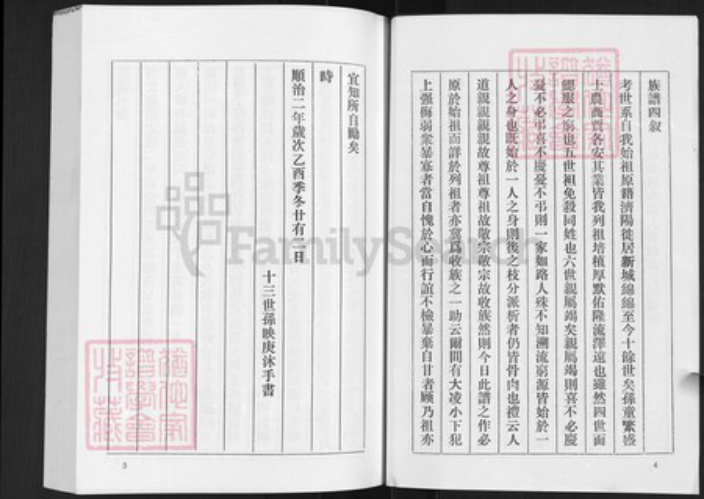 族譜四叙
考世系自我始祖原籍濟陽徙居新城綿綿至今十餘世矣孫童繁盛
士農商賈各安其業皆我列祖培植厚默佑隆流澤遠也雖然四世而
緦服之窮也五世袒免殺同姓也六世親屬竭矣親屬竭則喜不必慶
憂不必弔喜不慶憂不弔則一家如路人殊不知溯流窮源皆始於一
人之身也既始於一人之身則後之枝分派析者仍皆骨肉也禮云人
道親親親親故尊祖尊祖故敬宗敬宗故收族然則今日此譜之作必
原於始祖而詳於列祖者亦冀爲收族之一助云爾間有大凌小下犯
上强侮弱衆暴寡者當自愧於心而行誼不檢暴棄自甘者顾乃祖亦
4
宜知所自勵矣
時
順治二年歲次乙酉季冬廿有二日
十三世孫映庚沐手書
5
FamilySearch